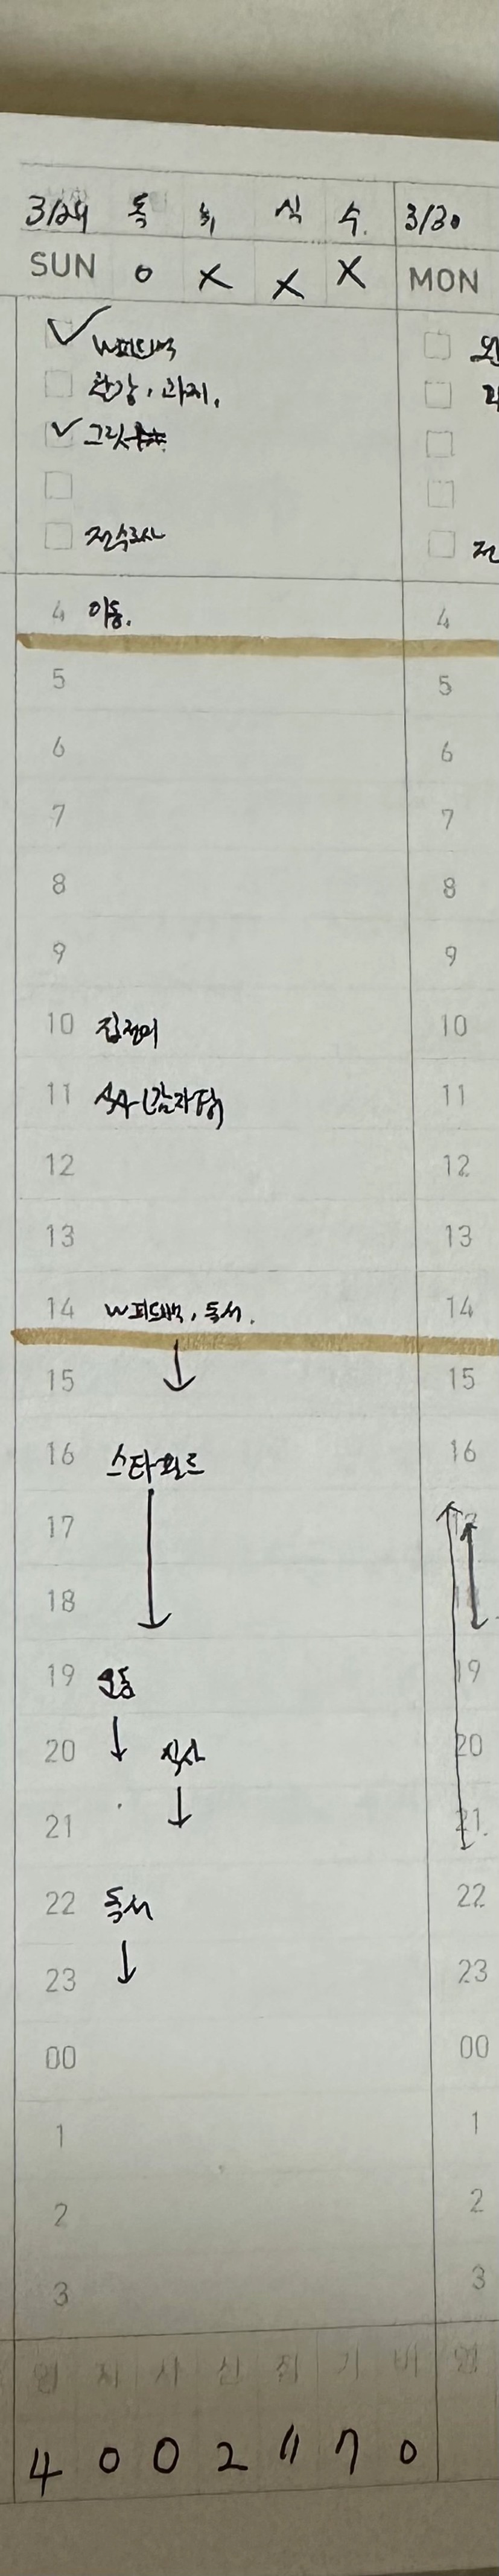 3/29 독 취 식 수. 3/30
SUN o X X X MON
W피드백
한강, 과제.
그릿
전수조사
4 이동. 4
5 5
6 6
7 7
8 8
9 9
10 집정리 10
11 식사(감자탕) 11
12 12
13 13
14 W피드백, 독서. 14
15 15
16 스타필드 16
17
18
19 운동 19
20 식사 20
21 21
22 독서 22
23 23
00 00
1 1
2 2
3 3
4 0 0 2 11 7 0